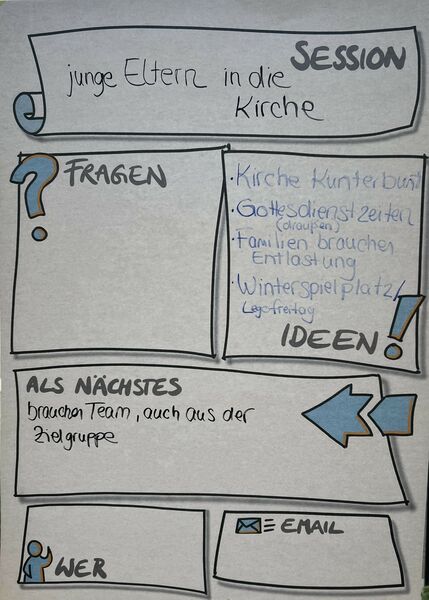 SESSION
junge Eltern in die
Kirche
? FRAGEN
· Kirche Kunterbunt
· Gottesdienstzeiten
(draußen)
· Familien brauchen
Entlastung
· Winterspielplatz/
Legofreitag
IDEEN!
ALS NÄCHSTES
brauchen Team, auch aus der
Zielgruppe
WER
EMAIL